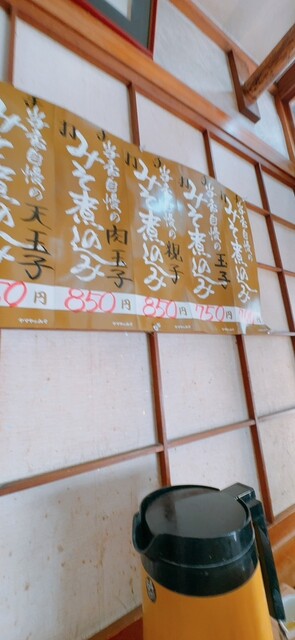 当店自慢の
みそ煮込み
天玉子
円
当店自慢の
みそ煮込み
肉玉子
850円
当店自慢の
みそ煮込み
親子
850円
当店自慢の
みそ煮込み
玉子
750円
当店自慢の
みそ煮込み